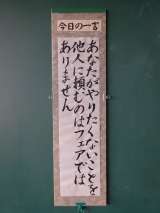 今日の一言
あなたがやりたくないことを
他人に頼むのはフェアでは
ありません